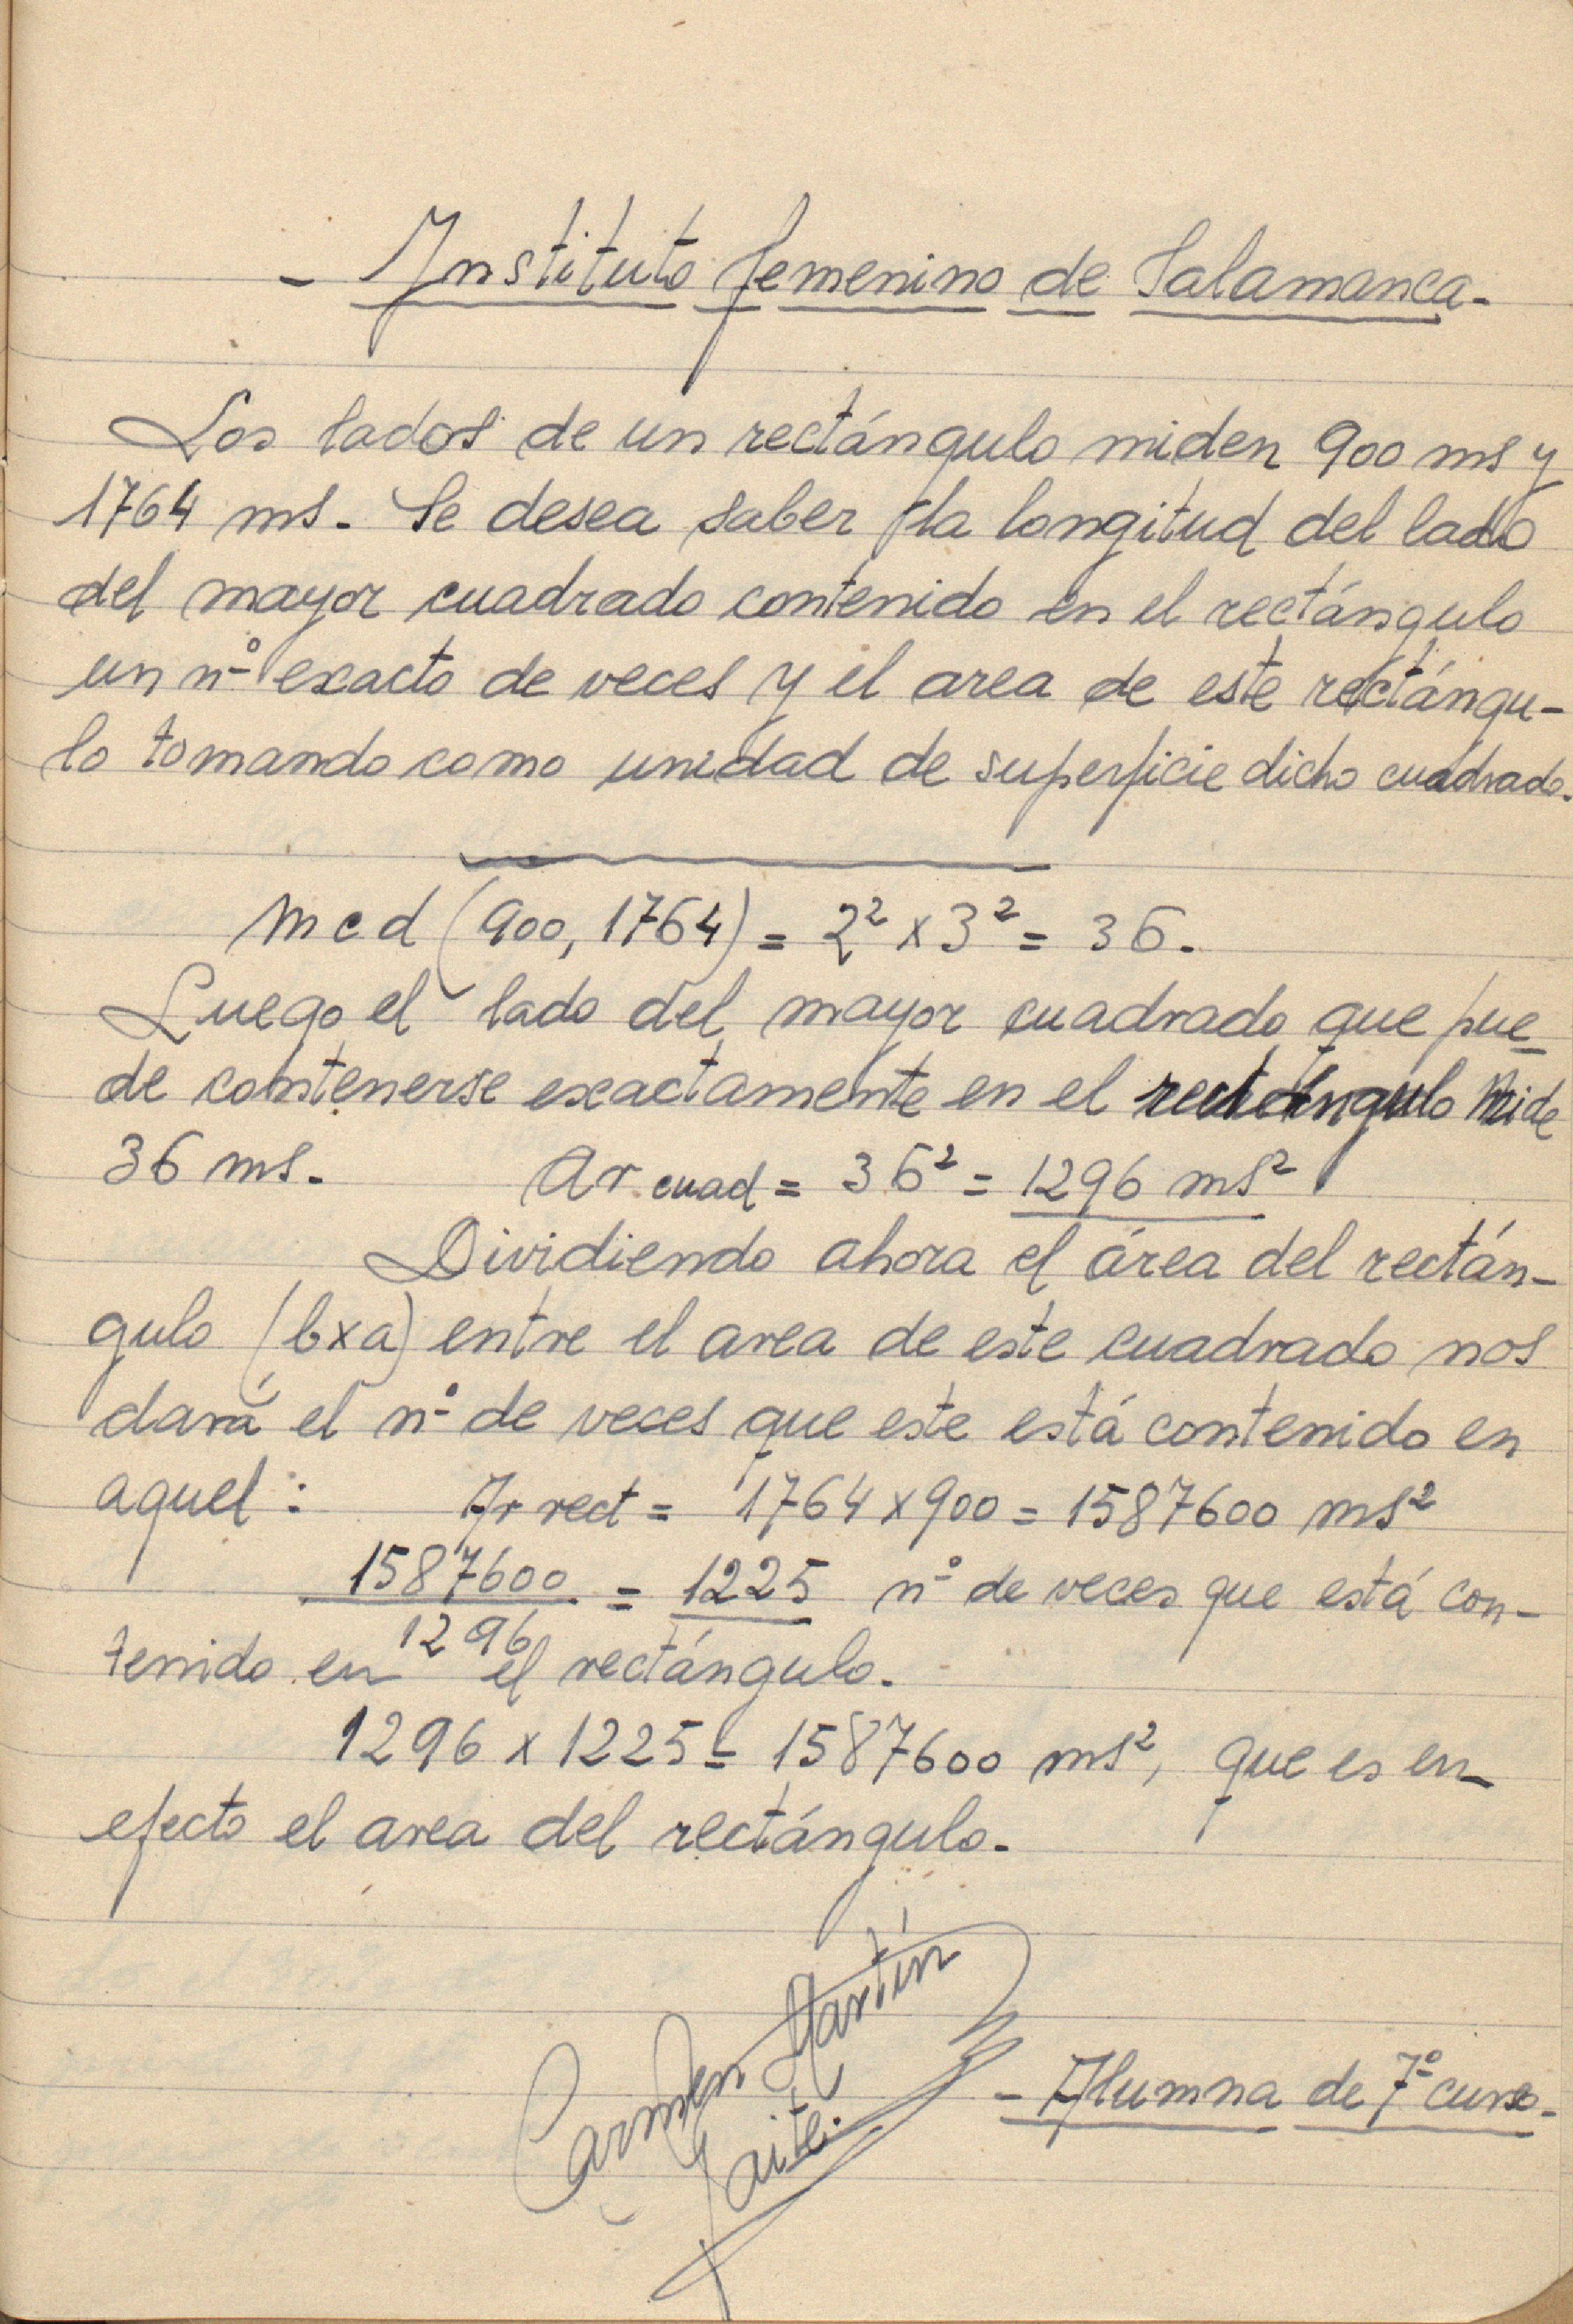 - Instituto femenino de Salamanca -
Los lados de un rectángulo miden 900 ms y
1764 ms. Se desea saber la longitud del lado
del mayor cuadrado contenido en el rectángulo
un nº exacto de veces y el area de este rectángu-
lo tomando como unidad de superficie dicho cuadrado.
mcd (900, 1764) = 2² x 3² = 36.
Luego el lado del mayor cuadrado que pue-
de contenerse exactamente en el rectángulo mide
36 ms. Ar cuad = 36² = 1296 ms²
Dividiendo ahora el área del rectán-
gulo (b x a) entre el area de este cuadrado nos
dará el nº de veces que este está contenido en
aquel: Ar rect = 1764 x 900 = 1587600 ms²
1587600 / 1296 = 1225 nº de veces que está con-
tenido en el rectángulo.
1296 x 1225 = 1587600 ms², que es en
efecto el area del rectángulo.
Carmen Martín
Gaite.
- Alumna de 7º curso -